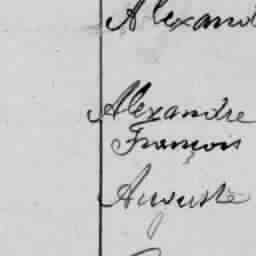 Alexand
Alexandre
François
Auguste